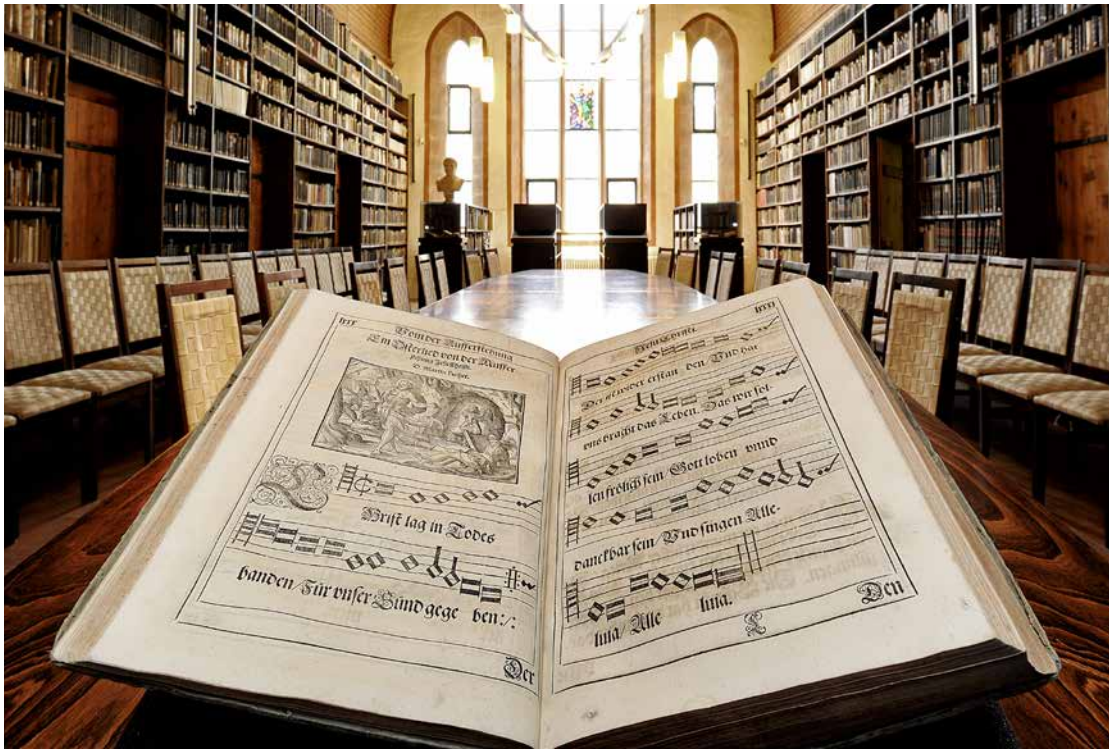 Von der Aufferstehung
Ein Osterlied von der Auffer
D. Martin Luther.
CHrist lag in Todes
banden / Für vnser Sünd gege ben:/:
Der
Jesu Christi.
Der ist wider erstan den / Vnd hat
vns bracht das Leben. Das wir sol-
len frölich sein / Gott loben vnnd
danckbar sein / Vnd singen Alle-
luia / Alle luia.
L
Den